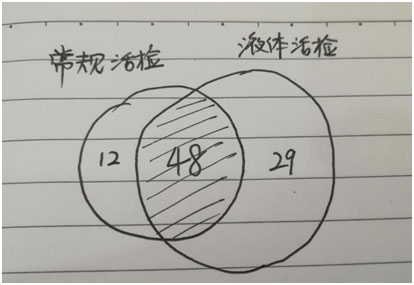 常规活检
液体活检
12
48
29